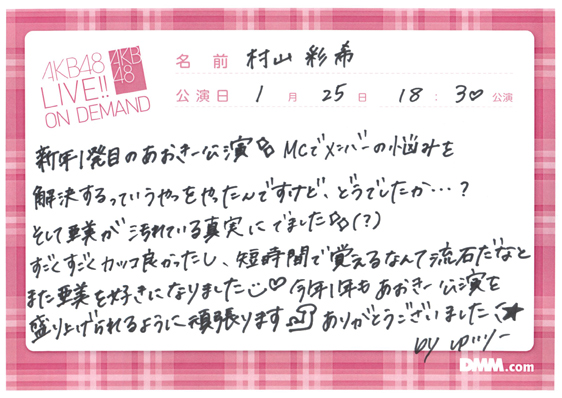 AKB48
LIVE!!
ON DEMAND
AKB
48
名前 村山彩希
公演日 1月25日 18:30公演
新年1発目のあおきー公演 MCでメンバーの悩みを
解決するっていうやつをやったんですけど、どうでしたか…?
そして亜美が汚れている真実にでました(?)
すごくすごくカッコ良かったし、短時間で覚えるなんて流石だなと
また亜美を好きになりました♡ 今年1年もあおきー公演を
盛り上げられるように頑張ります ありがとうございました
by ゆいりー
DMM.com